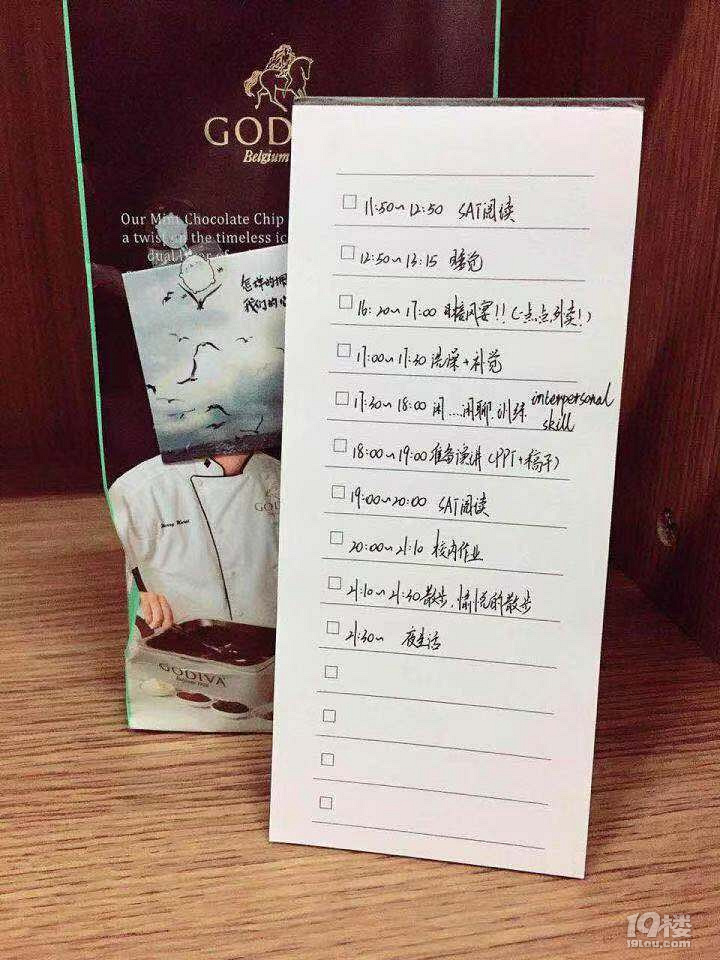 GODI
Belgium
Our Mint Chocolate Chip
a twist on the timeless ic
怎样的拥
我们的
GODIVA
GODIVA
Belgium
11:50~12:50 SAT阅读
12:50~13:15 睡觉
16:20~17:00 日租风宴!!(一点点外卖!)
17:00~17:30 洗澡+补觉
17:30~18:00 闲....闲聊.训练 interpersonal
skill
18:00~19:00 准备演讲(PPT+稿子)
19:00~20:00 SAT阅读
20:00~21:10 校内作业
21:10~21:30 散步,愉悦的散步
21:30~ 夜生活
19楼
19lou.com